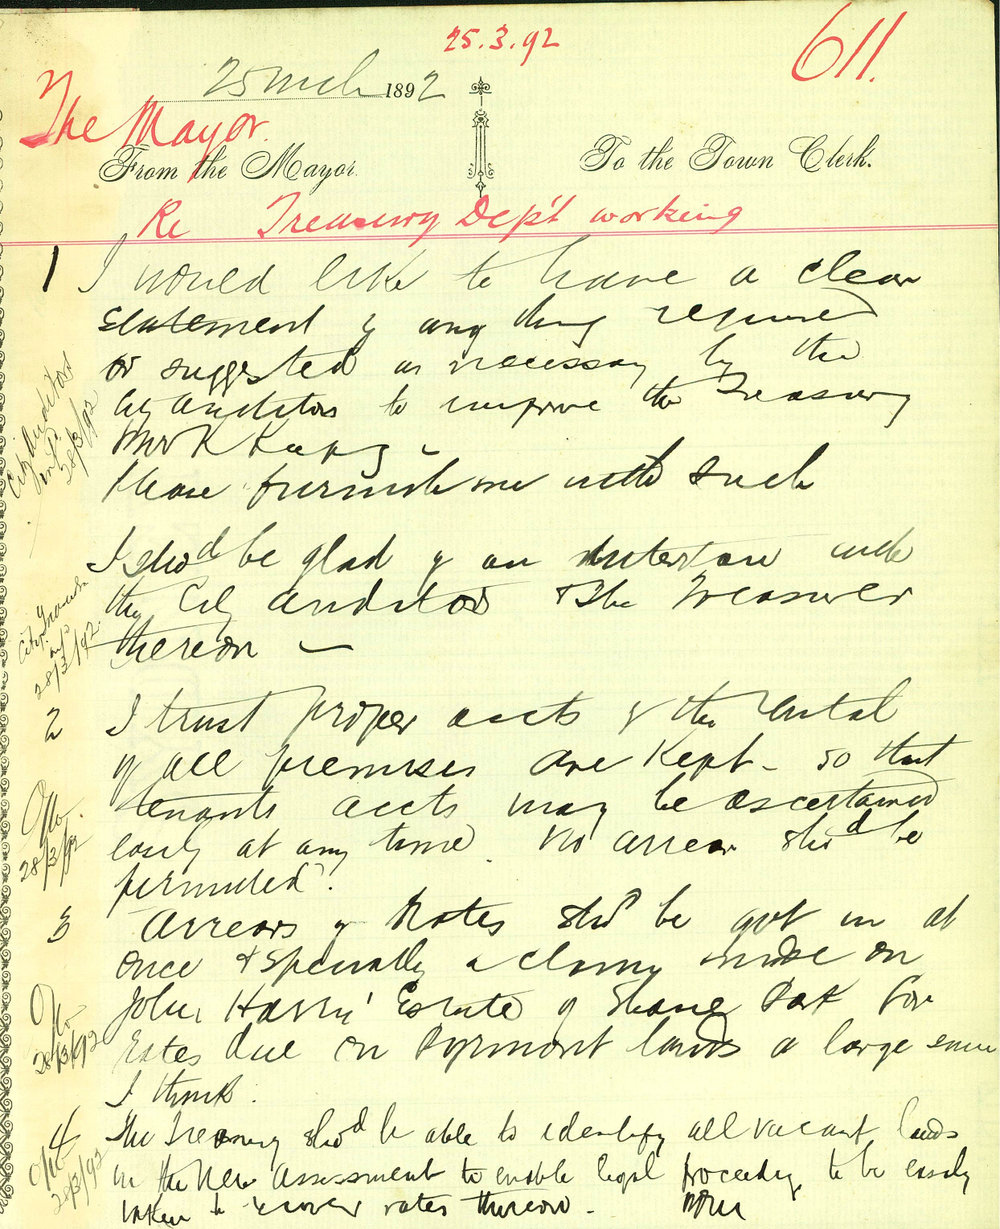 25.3.92
611.
25 Mch 1892
The Mayor
From the Mayor. To the Town Clerk.
Re Treasury Dep't working
1 I would like to have a clear
statement of any thing required
or suggested as necessary by the
City Auditors to improve the Treasury
Please furnish me with such
I sho^d be glad of an interview with
the City Auditors & the Treasurer
thereon —
2 I trust proper accts of the rental
of all premises are kept - so that
tenants accts may be ascertained
easily at any time. No arrears sho^d be
permitted.
3 Arrears of Rates sho^d be got in at
once & specially a claim made on
John Harris' Estate of Shane Park for
rates due on Pyrmont lands a large sum
I think.
4 The Treasury sho^d be able to identify all vacant lands
in the New Assessment to enable legal proceedings to be easily
taken to recover rates thereon.
City Auditors
28/3/92
City Treasurer
28/3/92
28/3/92
28/3/92
28/3/92